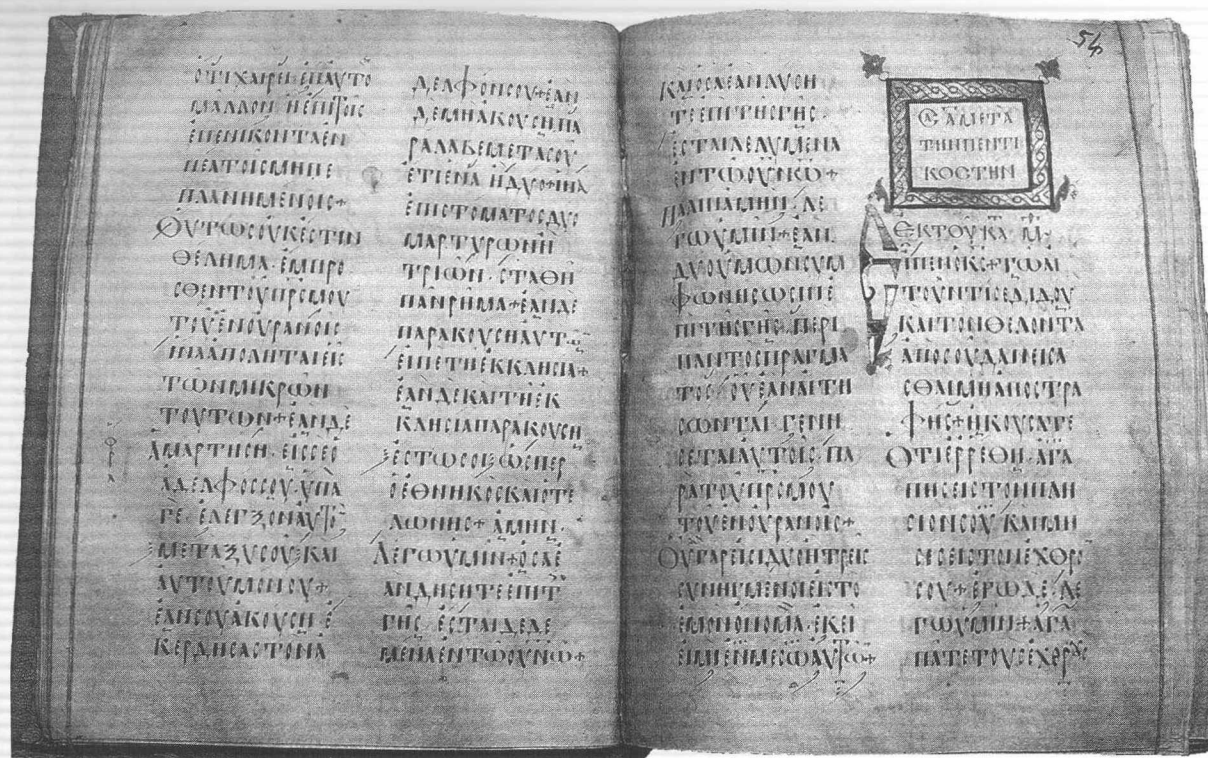 ΟΤΙΧΑΙΡΕΙΕΠΑΥΤΟ
ΜΑΛΛΟΝΗΕΠΙΤΟΙΣ
ΕΝΕΝΙΚΟΝΤΑΕΝ
ΝΕΑΤΟΙΣΜΗΠΕ
ΠΛΑΝΙΜΕΝΟΙΣ+
ΟΥΤΩΣΟΥΚΕΣΤΙΝ
ΘΕΛΗΜΑ·ΕΜΠΡΟ
ΣΘΕΝΤΟΥΠΡΣΜΟΥ
ΤΟΥΕΝΟΥΡΑΝΟΙΣ
ΙΝΑΑΠΟΛΗΤΑΙΕΙΣ
ΤΩΝΜΙΚΡΩΝ
ΤΟΥΤΩΝ+ΕΑΝΔΕ
ΑΜΑΡΤΗΣΗ·ΕΙΣΣΕΟ
ΑΔΕΛΦΟΣΣΟΥ·ΥΠΑ
ΓΕ·ΕΛΕΓΞΟΝΑΥΤΟ
ΜΕΤΑΞΥΣΟΥΚΑΙ
ΑΥΤΟΥΜΟΝΟΥ+
ΕΑΝΣΟΥΑΚΟΥΣΗ·Ε
ΚΕΡΔΗΣΑΣΤΟΝΑ
ΔΕΛΦΟΝΣΟΥ+ΕΑΝ
ΔΕΜΗΑΚΟΥΣΗ·ΠΑ
ΡΑΛΑΒΕΜΕΤΑΣΟΥ
ΕΤΙΕΝΑΗΔΥΟ+ΙΝΑ
ΕΠΙΣΤΟΜΑΤΟΣΔΥΟ
ΜΑΡΤΥΡΩΝΗ
ΤΡΙΩΝ·ΣΤΑΘΗ
ΠΑΝΡΗΜΑ+ΕΑΝΔΕ
ΠΑΡΑΚΟΥΣΗΑΥΤΩ
ΕΙΠΕΤΗΕΚΚΛΗΣΙΑ+
ΕΑΝΔΕΚΑΙΤΗΣΕΚ
ΚΛΗΣΙΑΠΑΡΑΚΟΥΣΗ
ΕΣΤΩΣΟΙΩΣΠΕΡ
ΟΕΘΝΗΚΟΣΚΑΙΟΤΕ
ΛΩΝΗΣ+ΑΜΗΝ·
ΛΕΓΩΥΜΙΝ+ΟΣΑΕ
ΑΝΔΗΣΗΤΕΕΠΙΤ
ΓΗΣ·ΕΣΤΑΙΔΕΔΕ
ΜΕΝΑΕΝΤΩΟΥΝΩ+
54
ΚΑΙΟΣΑΕΑΝΛΥΣΗ
ΤΕΕΠΙΤΗΣΓΗΣ·
ΕΣΤΑΙΛΕΛΥΜΕΝΑ
ΕΝΤΩΟΥΝΩ+
ΠΑΛΙΝΑΜΗΝΛΕ
ΓΩΥΜΙΝ+ΕΑΝ
ΔΥΟΥΜΩΝΣΥΜ
ΦΩΝΗΣΩΣΙΝΕ
ΠΙΤΗΣΓΗΣ·ΠΕΡΙ
ΠΑΝΤΟΣΠΡΑΓΜΑ
ΤΟΣ·ΟΥΕΑΝΑΙΤΗ
ΣΩΝΤΑΙ·ΓΕΝΗ
ΣΕΤΑΙΑΥΤΟΙΣ·ΠΑ
ΡΑΤΟΥΠΡΣΜΟΥ
ΤΟΥΕΝΟΥΡΑΝΟΙΣ+
ΟΥΓΑΡΕΙΣΙΔΥΟΗΤΡΕΙΣ
ΣΥΝΗΓΜΕΝΟΙΕΙΣΤΟ
ΕΜΟΝΟΝΟΜΑ·ΕΚΕΙ
ΕΙΜΙΕΝΜΕΣΩΑΥΤΩ+
ΣΑΜΕΤΑ
ΤΗΝΠΕΝΤΙ
ΚΟΣΤΗΝ
ΕΚΤΟΥΚΑΜ
ΙΠΕΝΟΚΣ+ΤΩΑΙ
ΤΟΥΝΤΙΣΕΔΙΔΟΥ
ΚΑΙΤΟΝΘΕΛΟΝΤΑ
ΑΠΟΣΟΥΔΑΝΕΙΣΑ
ΣΘΑΙΜΗΑΠΟΣΤΡΑ
ΦΗΣ+ΗΚΟΥΣΑΤΕ
ΟΤΙΕΡΡΕΘΗ·ΑΓΑ
ΠΗΣΕΙΣΤΟΝΠΛΗ
ΣΙΟΝΣΟΥΚΑΙΜΗ
ΣΗΣΕΙΣΤΟΝΕΧΘΡΟ
ΣΟΥ+ΕΓΩΔΕΛΕ
ΓΩΥΜΙΝ+ΑΓΑ
ΠΑΤΕΤΟΥΣΕΧΘΡΟΥΣ